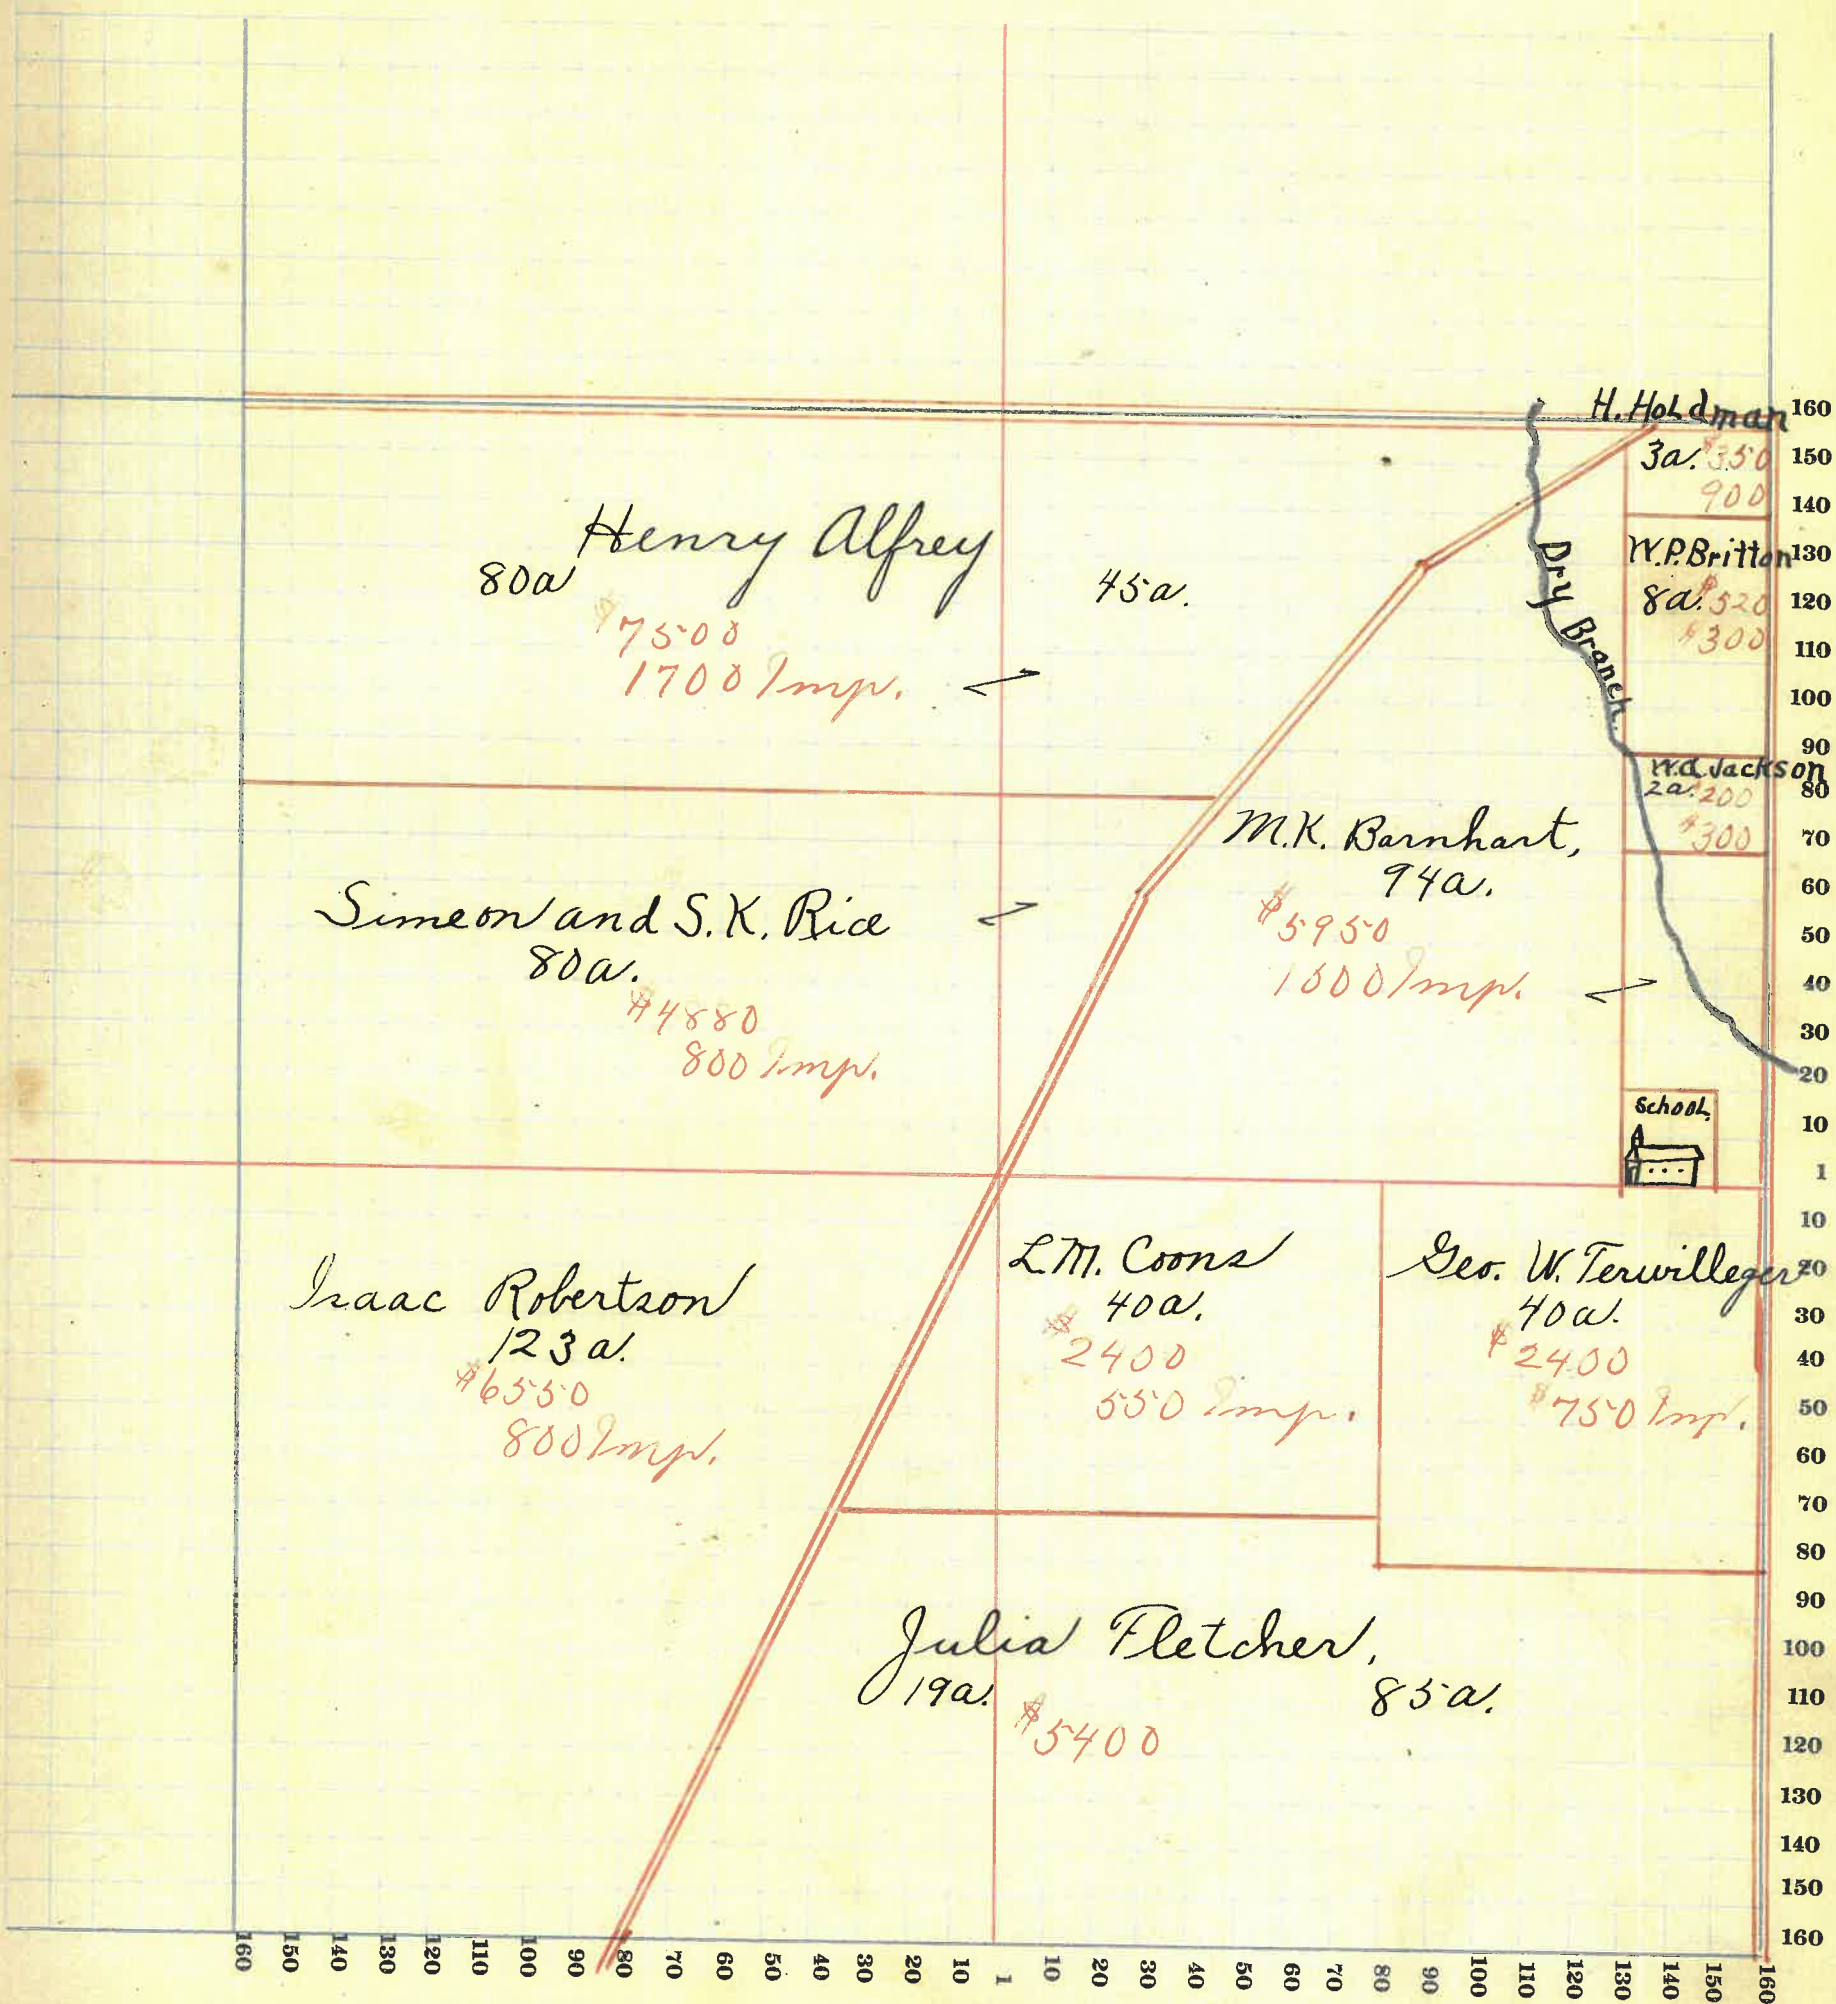 H. Holdman
3a. $350
900
Henry Alfrey
80a
45a.
$7500
1700 Imp.
Dry Branch
W.P. Britton
8a. $520
$300
W.A. Jackson
2a. 200
$300
M.K. Barnhart,
94a.
$5950
1000 Imp.
Simeon and S.K. Rice
80a.
$4880
800 Imp.
School
Isaac Robertson
123a.
$6550
800 Imp.
L.M. Coons
40a.
$2400
550 Imp.
Geo. W. Terwilleger
40a.
$2400
$750 Imp.
Julia Fletcher,
19a.
85a.
$5400
160
150
140
130
120
110
100
90
80
70
60
50
40
30
20
10
1
10
20
30
40
50
60
70
80
90
100
110
120
130
140
150
160
160 150 140 130 120 110 100 90 80 70 60 50 40 30 20 10 1 10 20 30 40 50 60 70 80 90 100 110 120 130 140 150 160